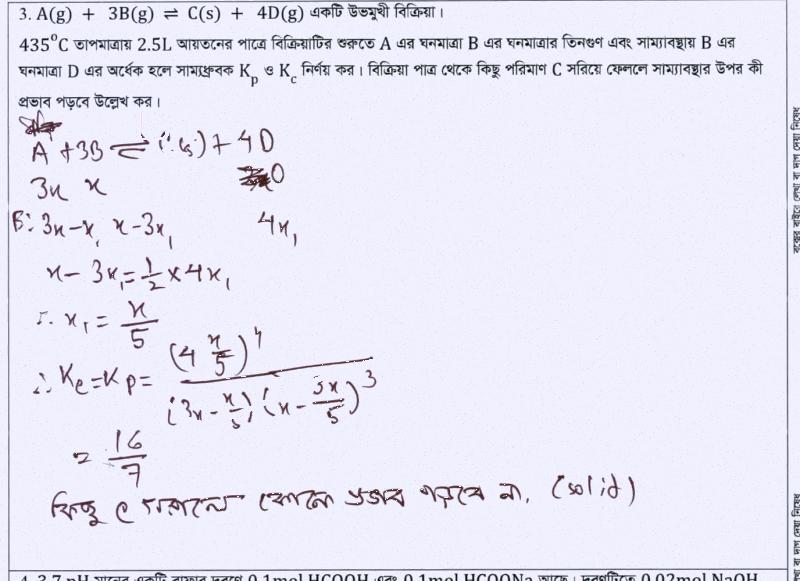 3. A(g) + 3B(g) ⇌ C(s) + 4D(g) একটি উভমুখী বিক্রিয়া।
435°C তাপমাত্রায় 2.5L আয়তনের পাত্রে বিক্রিয়াটির শুরুতে A এর ঘনমাত্রা B এর ঘনমাত্রার তিনগুণ এবং সাম্যাবস্থায় B এর
ঘনমাত্রা D এর অর্ধেক হলে সাম্যধ্রুবক Kp ও Kc নির্ণয় কর। বিক্রিয়া পাত্র থেকে কিছু পরিমাণ C সরিয়ে ফেললে সাম্যাবস্থার উপর কী
প্রভাব পড়বে উল্লেখ কর।
A + 3B ⇌ C(s) + 4D
3x x 0
3x-x₁ x-3x₁ 4x₁
x - 3x₁ = 1/2 × 4x₁
∴ x₁ = x/5
∴ Kc = Kp = (4 x/5)^4 / (3x - x/5)(x - 3x/5)^3
= 16/7
কিছু C সরালে কোনো প্রভাব পড়বে না. (solid)
বক্সের বাইরে লেখা বা দাগ দেয়া নিষেধ
4. 3.7 pH মানের একটি বাফার দ্রবণে 0.1mol HCOOH এবং 0.1mol HCOONa আছে। দ্রবণটিতে 0.02mol NaOH